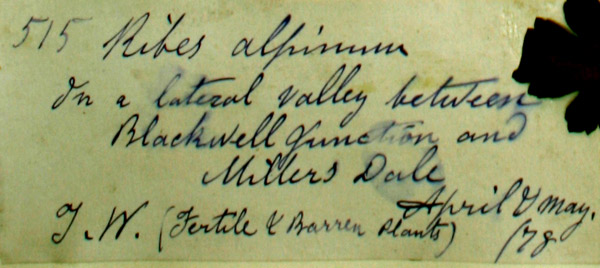 515 Ribes alpinum
In a lateral valley between
Blackwell Junction and
Millers Dale
April & May.
T. W. (Fertile & Barren Plants) /78